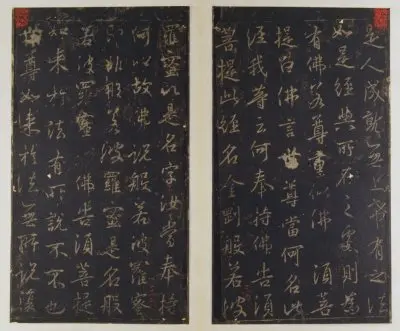 是人成就上希有之法
如是經典所在之處則為
有佛若尊重似佛須菩
提白佛言世尊當何名此
經我等云何奉持佛告須
菩提此經名金剛般若波
羅蜜以是名字汝當奉持
何以故佛說般若波羅蜜
即非般若波羅蜜是名般
若波羅蜜佛告須菩提
如来於法有所說不不也
世尊如来於法無所說須